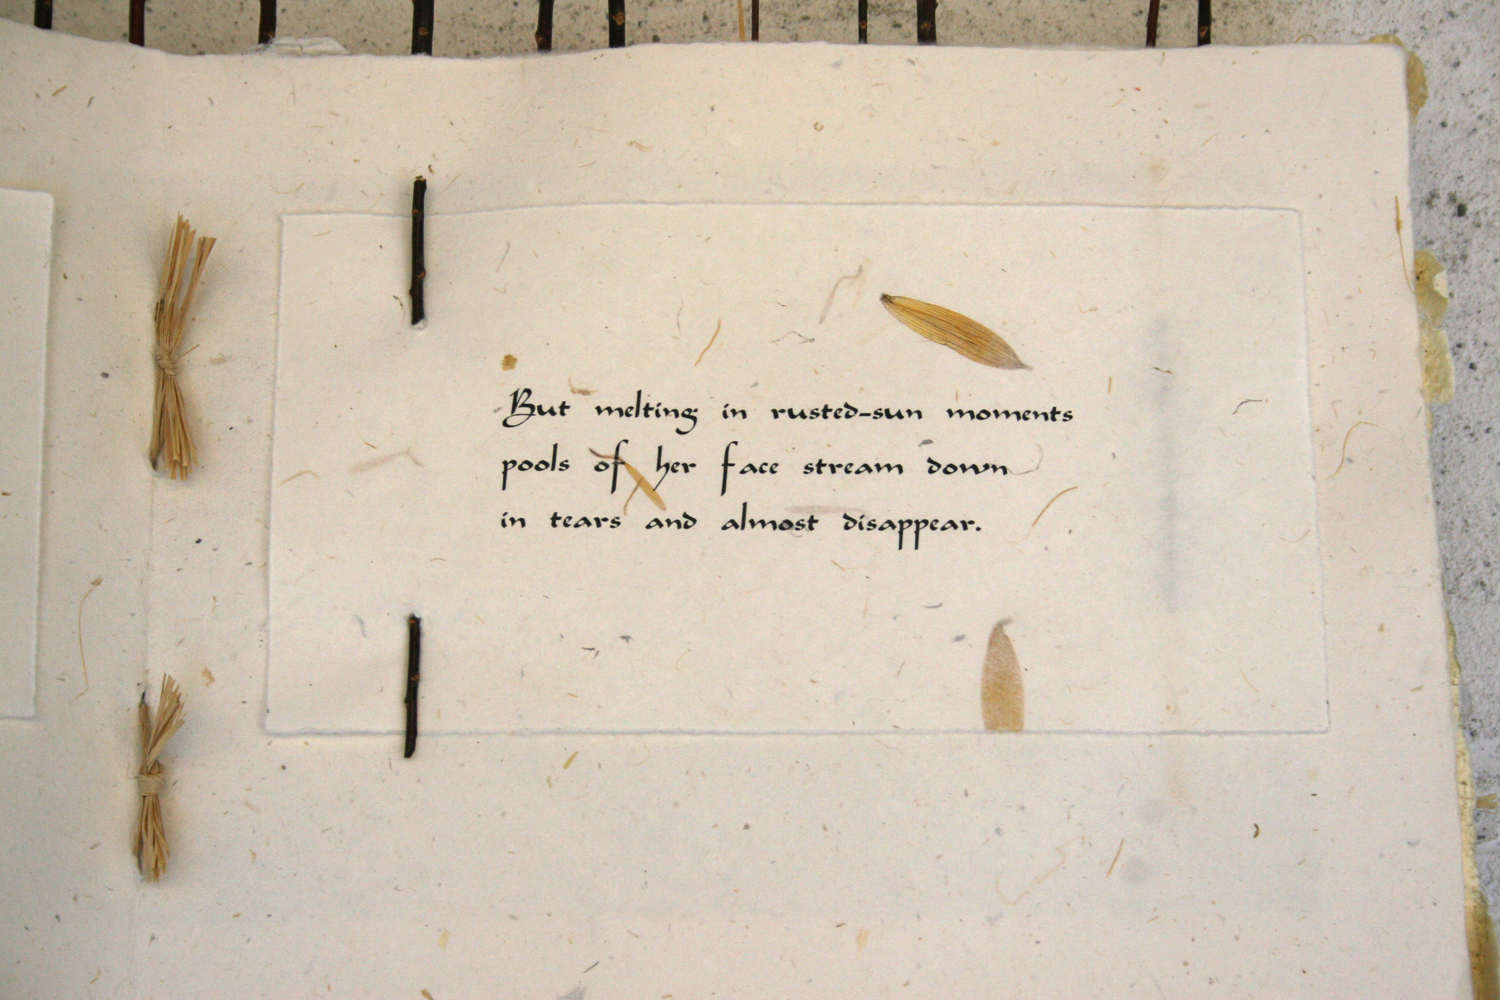 But melting in rusted-sun moments
pools of her face stream down
in tears and almost disappear.